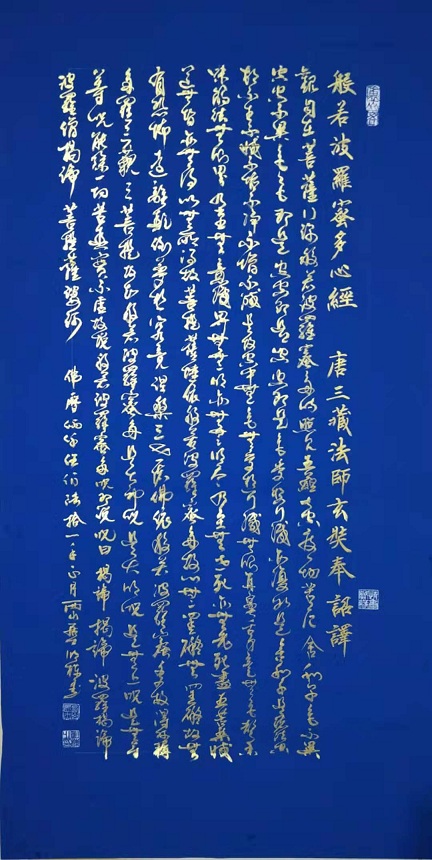 般若波羅蜜多心經 唐三藏法師玄奘奉詔譯
觀自在菩薩行深般若波羅蜜多時照見五蘊皆空度一切苦厄舍利子色不異
空空不異色色即是空空即是色受想行識亦復如是舍利子是諸法空
相不生不滅不垢不淨不增不減是故空中無色無受想行識無眼耳鼻舌身意無色聲香
味觸法無眼界乃至無意識界無無明亦無無明盡乃至無老死亦無老死盡無苦集滅
道無智亦無得以無所得故菩提薩埵依般若波羅蜜多故心無罣礙無罣礙故無
有恐怖遠離顛倒夢想究竟涅槃三世諸佛依般若波羅蜜多故得阿耨
多羅三藐三菩提故知般若波羅蜜多是大神咒是大明咒是無上咒是無等
等咒能除一切苦真實不虛故說般若波羅蜜多咒即說咒曰揭諦揭諦波羅揭諦
波羅僧揭諦 菩提薩婆訶 佛曆 正月